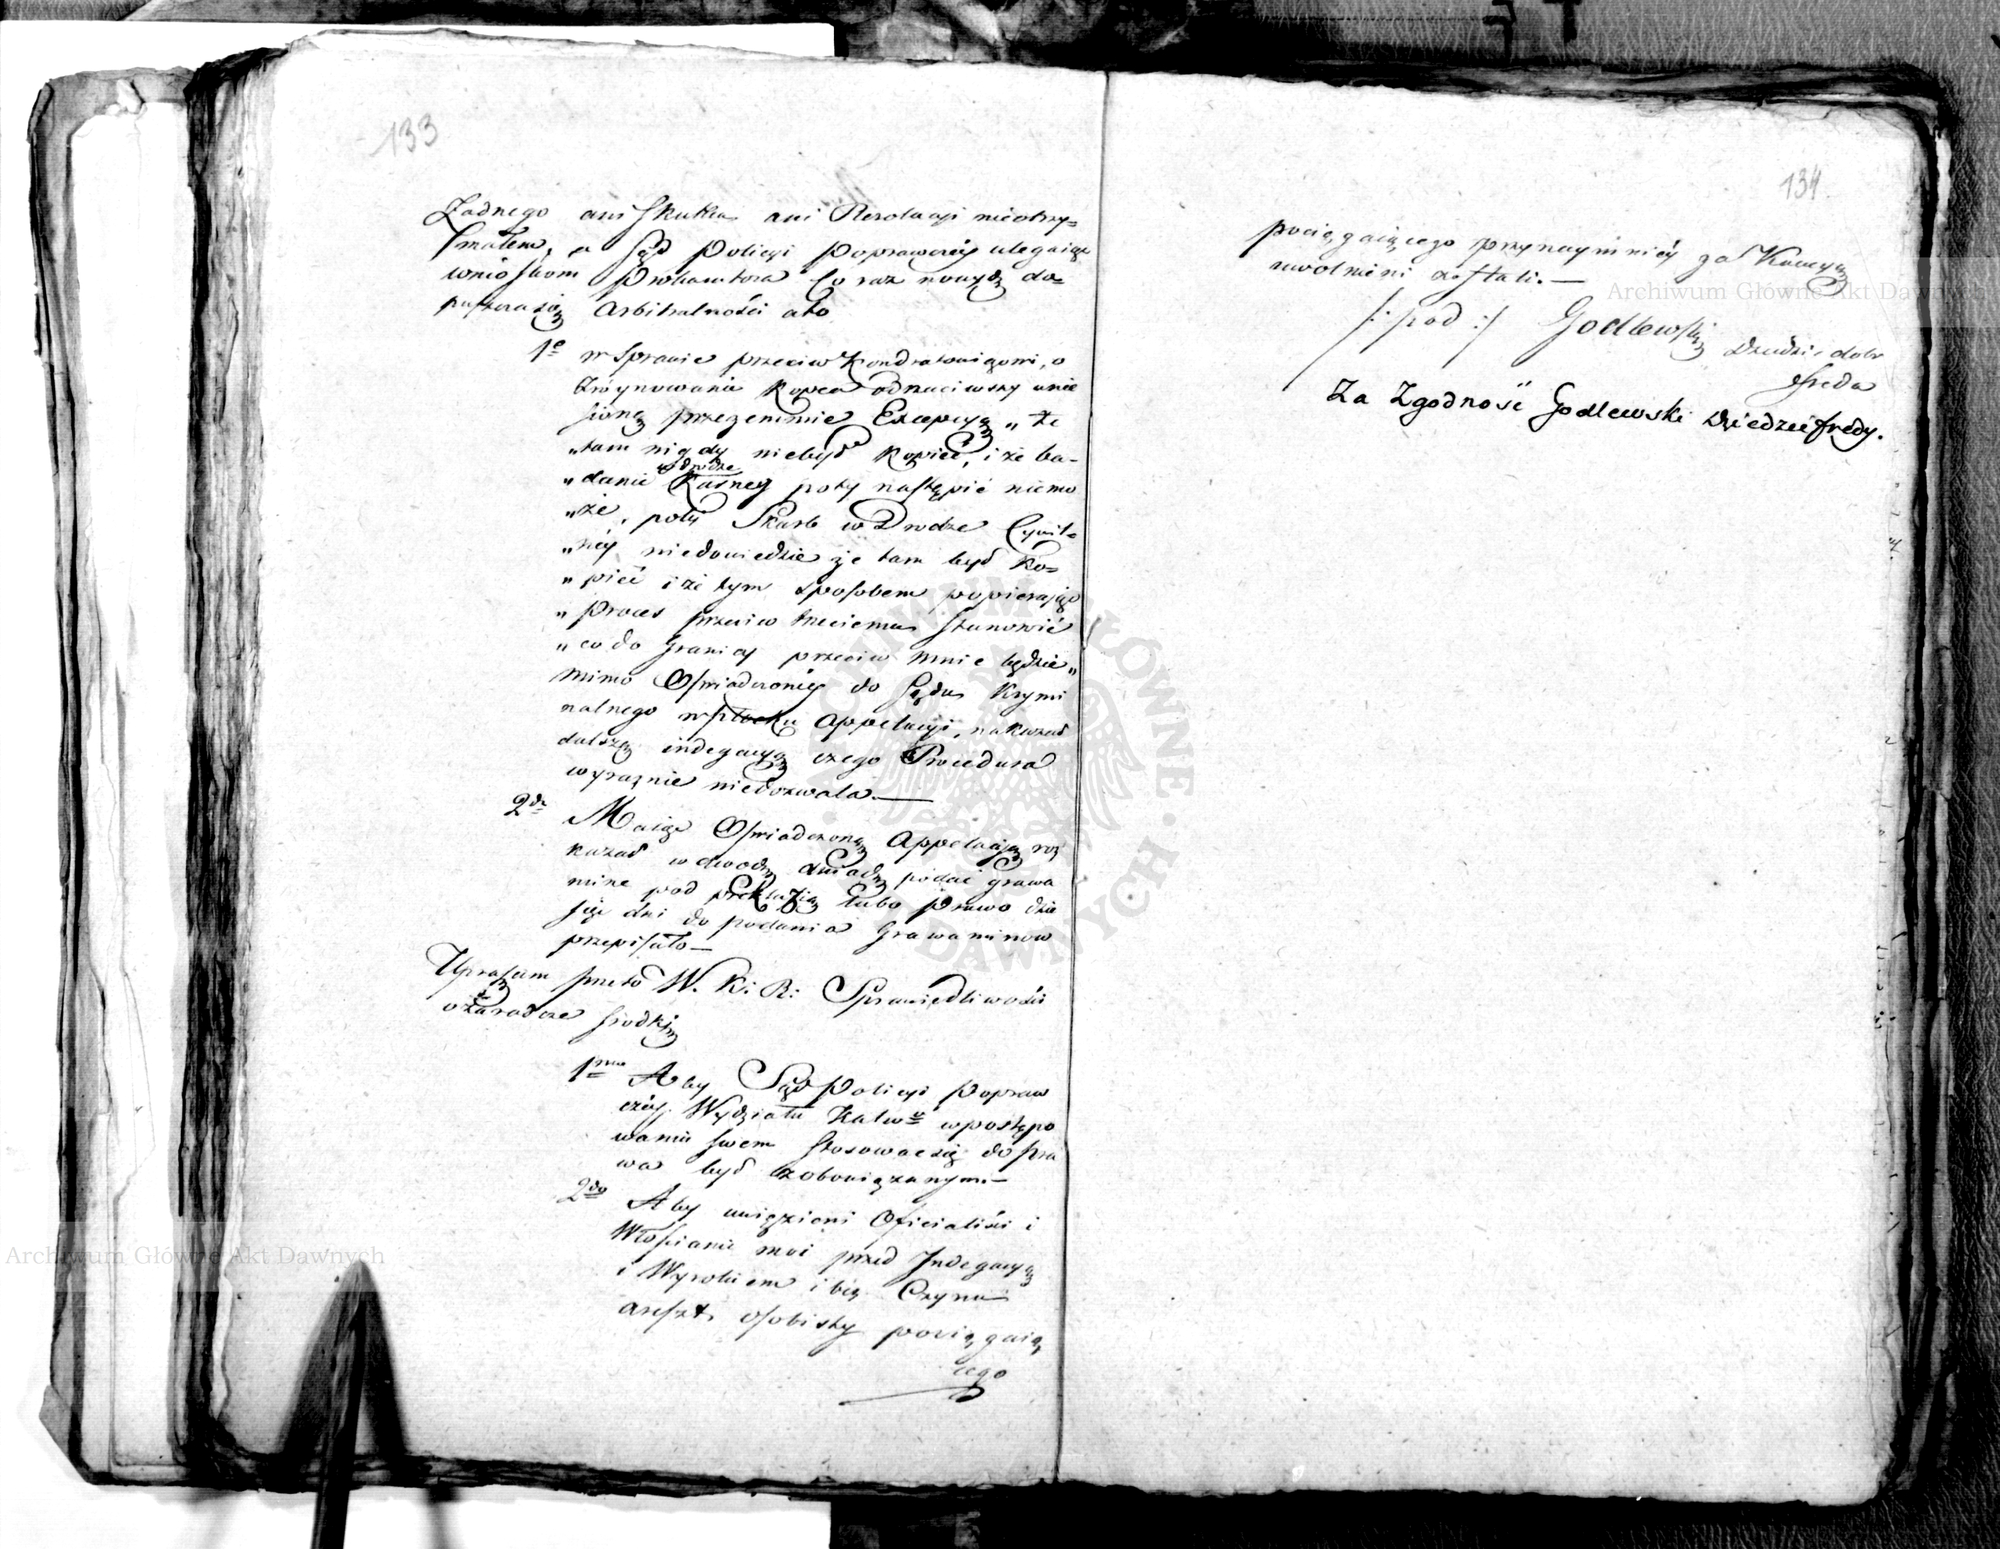 133
Żadnego ani skutku ani Rezolucyi nieotrzy=
małem, a Sąd Policyi Poprawczéy ulegaiąc
wnioskom Prokuratora Coraz nowych do=
puszcza się Arbitralności ato
1º w Sprawie przeciw Kondratowiczowi, o
Zróynowanie Kopca odrzuciwszy unie
sioną przezemnie Excepcyą „że
„tam nigdy niebył Kopiec, i że ba-
„danie w drodze Karney poty nastąpić niemo
„że, poty Skarb w Drodze Cywil=
„néy niedowiedzie że tam był Ko=
„piec i że tym sposobem popieraiąc
„Proces przeciw trzeciemu stanowić
„co do Granicy przeciw mnie będzie„
mimo Oświadczonéy do Sądu Krymi
nalnego w Płocku Appellacyi, nakazał
dalszą indegacyą czego Procedura
wyraznie niedozwala.—
2do Maiąc Oświadczoną Appellacyą roz
kazał w dwóch dniach podać grawa
mina pod prekluzią lubo Prawo dzie
sięć dni do podania Grawaminow
przepisało—
Upraszam przeto W. K: R: Sprawiedliwości
o zaradcze srodki
1mo Aby Sąd Policyi Popraw
czéy Wydziału Kalwgo w postępo
waniu swem stosować się do pra
wa był zobowiązanym.—
2do Aby uwięzieni Oficialiści i
Włościanie moi przed Indegacyą
i Wyrokiem i bez Czynu
areszt osobisty pociągaią
cego
134
pociągaiącego przynaymniéy za Kaucyą
uwolnieni zostali.—
/: pod :/ Godlewski Dziedzic dobr
Freda
Za Zgodność Godlewski Dziedzic Fredy.
Archiwum Główne Akt Dawnych
Archiwum Główne Akt Dawnych